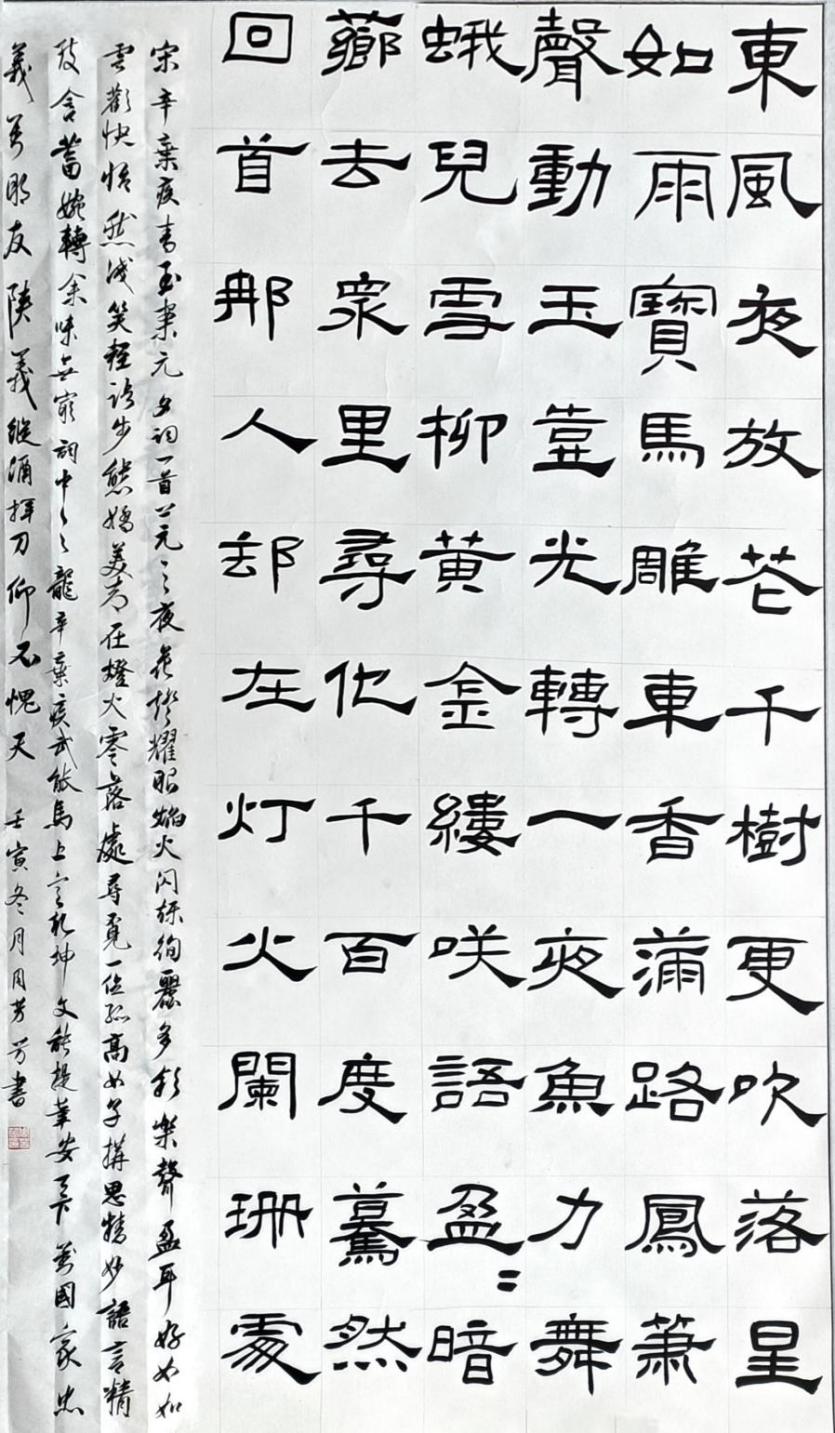 東風夜放芲千樹更吹落星
如雨寳馬雕車香滿路鳳箫
聲動玉壷光轉一夜魚力舞
蛾兒雪柳黄金縷咲語盈〻暗
薌去衆里尋他千百度驀然
回首那人却在灯火闌珊處
宋辛棄疾青玉案元夕詞一首元之夜花燈耀眼焰火闪烁绚麗多彩樂聲盈耳好女如
雲歡快悟然浅笑轻語步態嬌美者在燈火零落處尋覓一位孤高女子構思精妙語言精
致含蓄婉轉余味無窮詞中之龍辛棄疾武能馬上定乾坤文能提筆安天下萬國家忠
義萬明友陕義縱涌挥刀仰不愧天 壬寅冬月周芳芳書